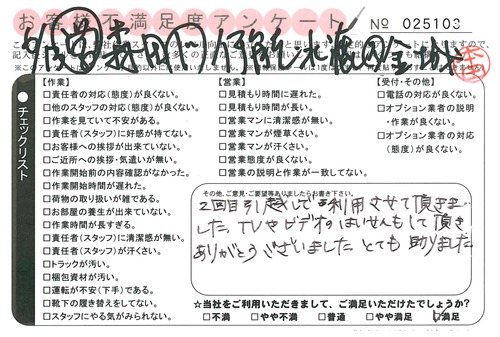 お客様不満足度アンケート
№ 025103
チェックリスト
【作業】
□責任者の対応(態度)が良くない。
□他のスタッフの対応(態度)が良くない。
□作業を見ていて不安がある。
□責任者(スタッフ)に好感が持てない。
□お客様への挨拶が出来ていない。
□ご近所への挨拶・気遣いが無い。
□作業開始前の内容確認がなかった。
□作業開始時間が遅れた。
□荷物の取り扱いが雑である。
□お部屋の養生が出来ていない。
□作業時間が長すぎる。
□責任者(スタッフ)に清潔感が無い。
□責任者(スタッフ)が汗くさい。
□トラックが汚い。
□梱包資材が汚い。
□運転が不安(下手)である。
□靴下の履き替えをしてない。
□スタッフにやる気がみられない。
【営業】
□見積もり時間に遅れた。
□見積もり時間が長い。
□営業マンに清潔感が無い。
□営業マンが煙草くさい。
□営業マンが汗くさい。
□営業態度が良くない。
□営業の説明と作業が一致してない。
【受付・その他】
□電話の対応が良くない。
□オプション業者の説明
・作業が良くない。
□オプション業者の対応
(態度)が良くない。
その他、ご意見・ご要望等ありましたらお書き下さい。
2回目引越しでご利用させて頂きま
した。TVやビデオのはいせんもして頂き
ありがとうございました とても助りました
☆当社をご利用いただきまして、ご満足いただけたでしょうか?
□不満 □やや不満 □普通 □やや満足 □満足